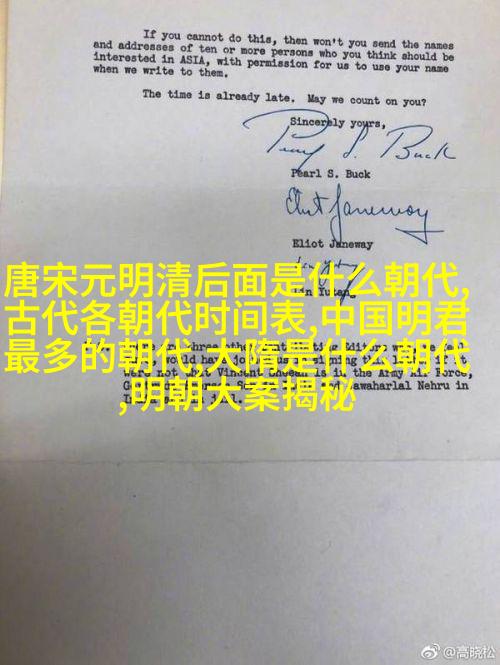 If you cannot do this, then won't you send the names
and addresses of ten or more persons who you think should be
interested in ASIA, with permission for us to use your name
when we write to them.
The time is already late. May we count on you?
Sincerely yours,
Pearl S. Buck
Pearl S. Buck
Eliot Janeway
Eliot Janeway
Lin Yutang
唐宋元明清后面是什么朝代,
古代各朝代时间表,中国明君
最多的朝代,大隋是什么朝代
,明朝大案揭秘
were not
is in the Army Air Force,
Jawaharlal Nehru in
@高晓松